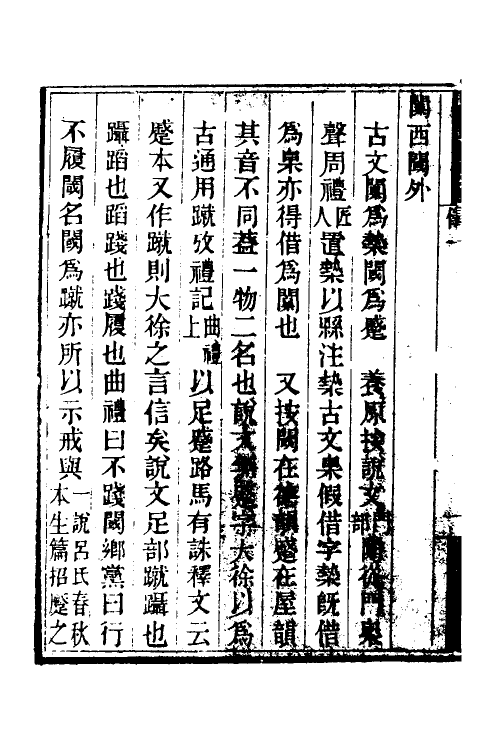 闑西閾外
古文闑爲槷閾爲蹙　養原按說文門部闑從門臬
聲周禮匠人置槷以縣注槷古文臬假借字槷旣借
爲臬亦得借爲闑也　又按閾在職韻蹙在屋韻
其音不同葢一物二名也說文無蹙字大徐以爲
古通用蹴攷禮記曲禮上以足蹙路馬有誅釋文云
蹙本又作蹴則大徐之言信矣說文足部蹴躡也
躡蹈也蹈踐也踐履也曲禮曰不踐閾鄉黨曰行
不履閾名閾爲蹴亦所以示戒與一說呂氏春秋本生篇招蹷之